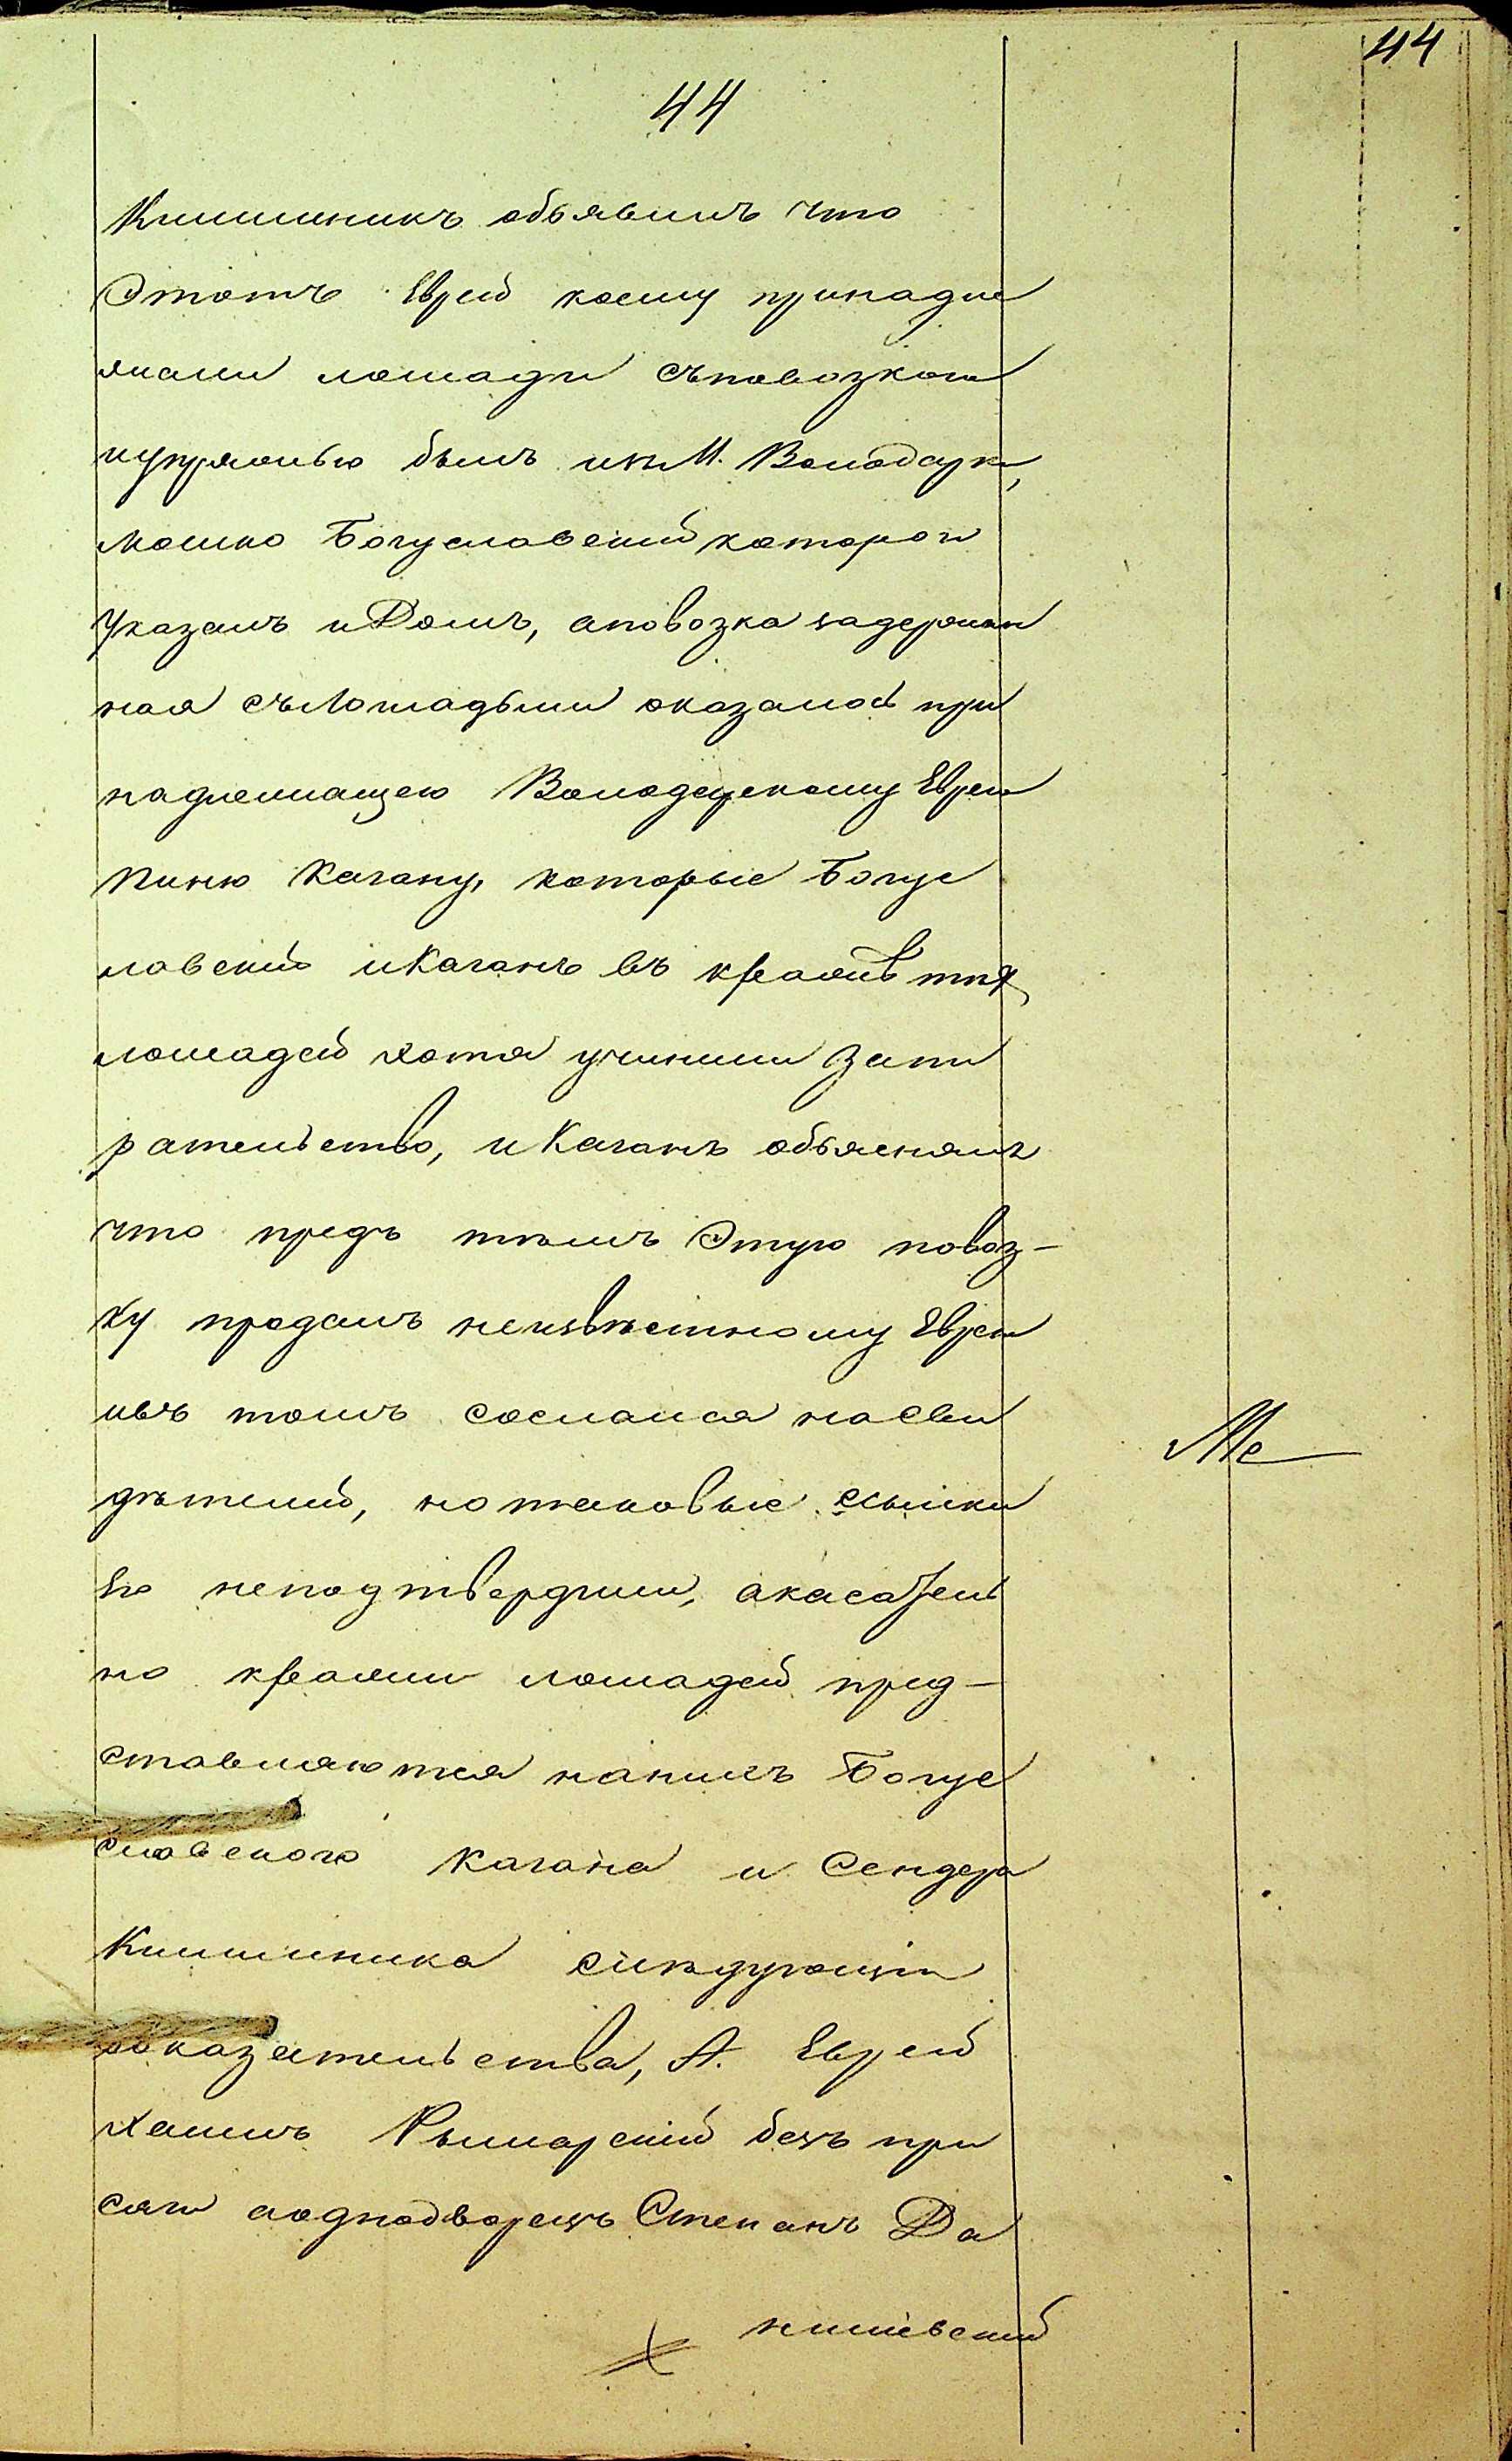 44
44
Клишникъ объявилъ что
Этотъ Еврей коему принадле
жали лошади съповозкою
иупряжью былъ изъ М. Володарки,
Мошко Богуславский которой
Указалъ и Домъ, аповозка задержан
ная съЛошадьми оказалось при
надлежащею Володарскому Еврею
Пиню Кагану, которые Богус
лавский иКаганъ въ кражѣ тѣхъ
лошадей хотя учинили запи
рательство, и Каганъ объяснялъ
что предъ тѣмъ Этую повоз-
ку продалъ неизвѣстному Еврею
ивъ томъ сослался наСви
дѣтелей, но таковые ссылки
его неподтвердили, акасатель
но кражи лошадей пред-
ставляются нанихъ Богус
славского Кагана и Сендера
Клишника слѣдующія
доказательства, А. Еврей
Хаимъ Рымарский безъ при
сяги аоднодворецъ Степанъ Да
нишевский
Ме